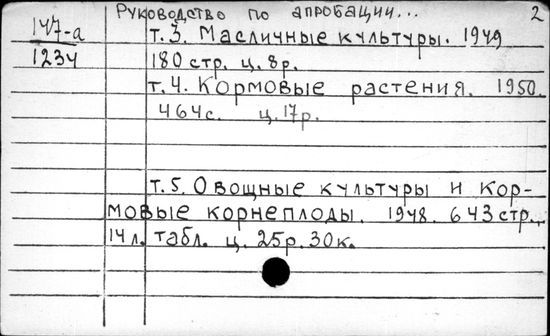 Руководство по апробации... 2
147-а т. 3. Масличные культуры. 1949
1234 180 стр. ц. 8р.
т. 4. Кормовые растения. 1950.
464с. ц. 17р.
т. 5. Овощные культуры и кор-
мовые корнеплоды. 1948. 643 стр.,
14 л. табл. ц. 25р. 30к.